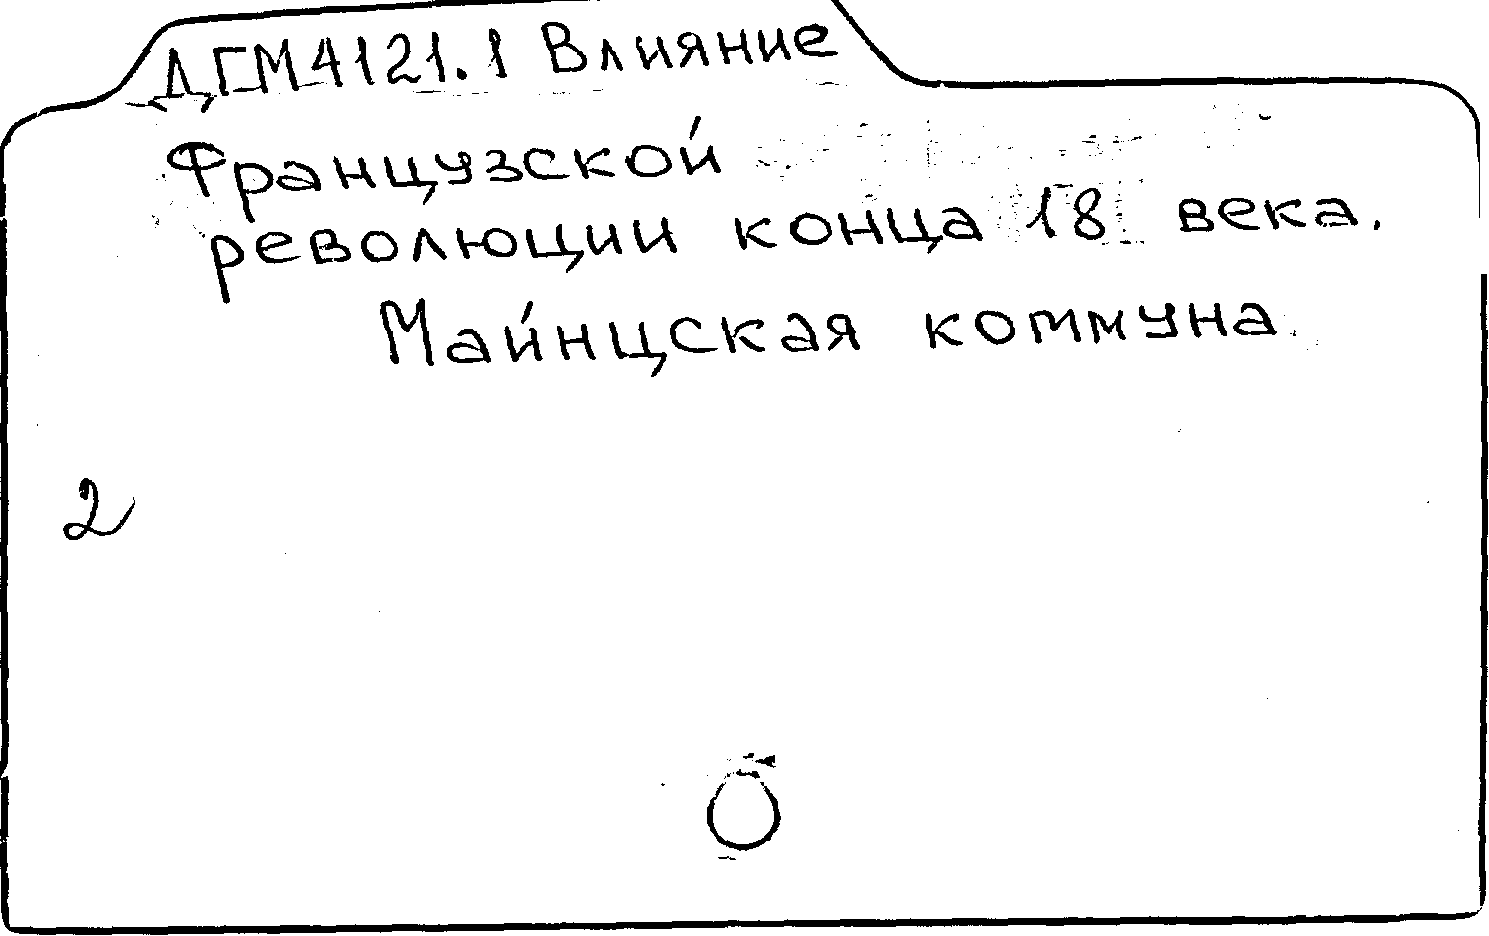 ДГМ4121.1 Влияние
Французской
революции конца 18 века.
Майнцская коммуна
2